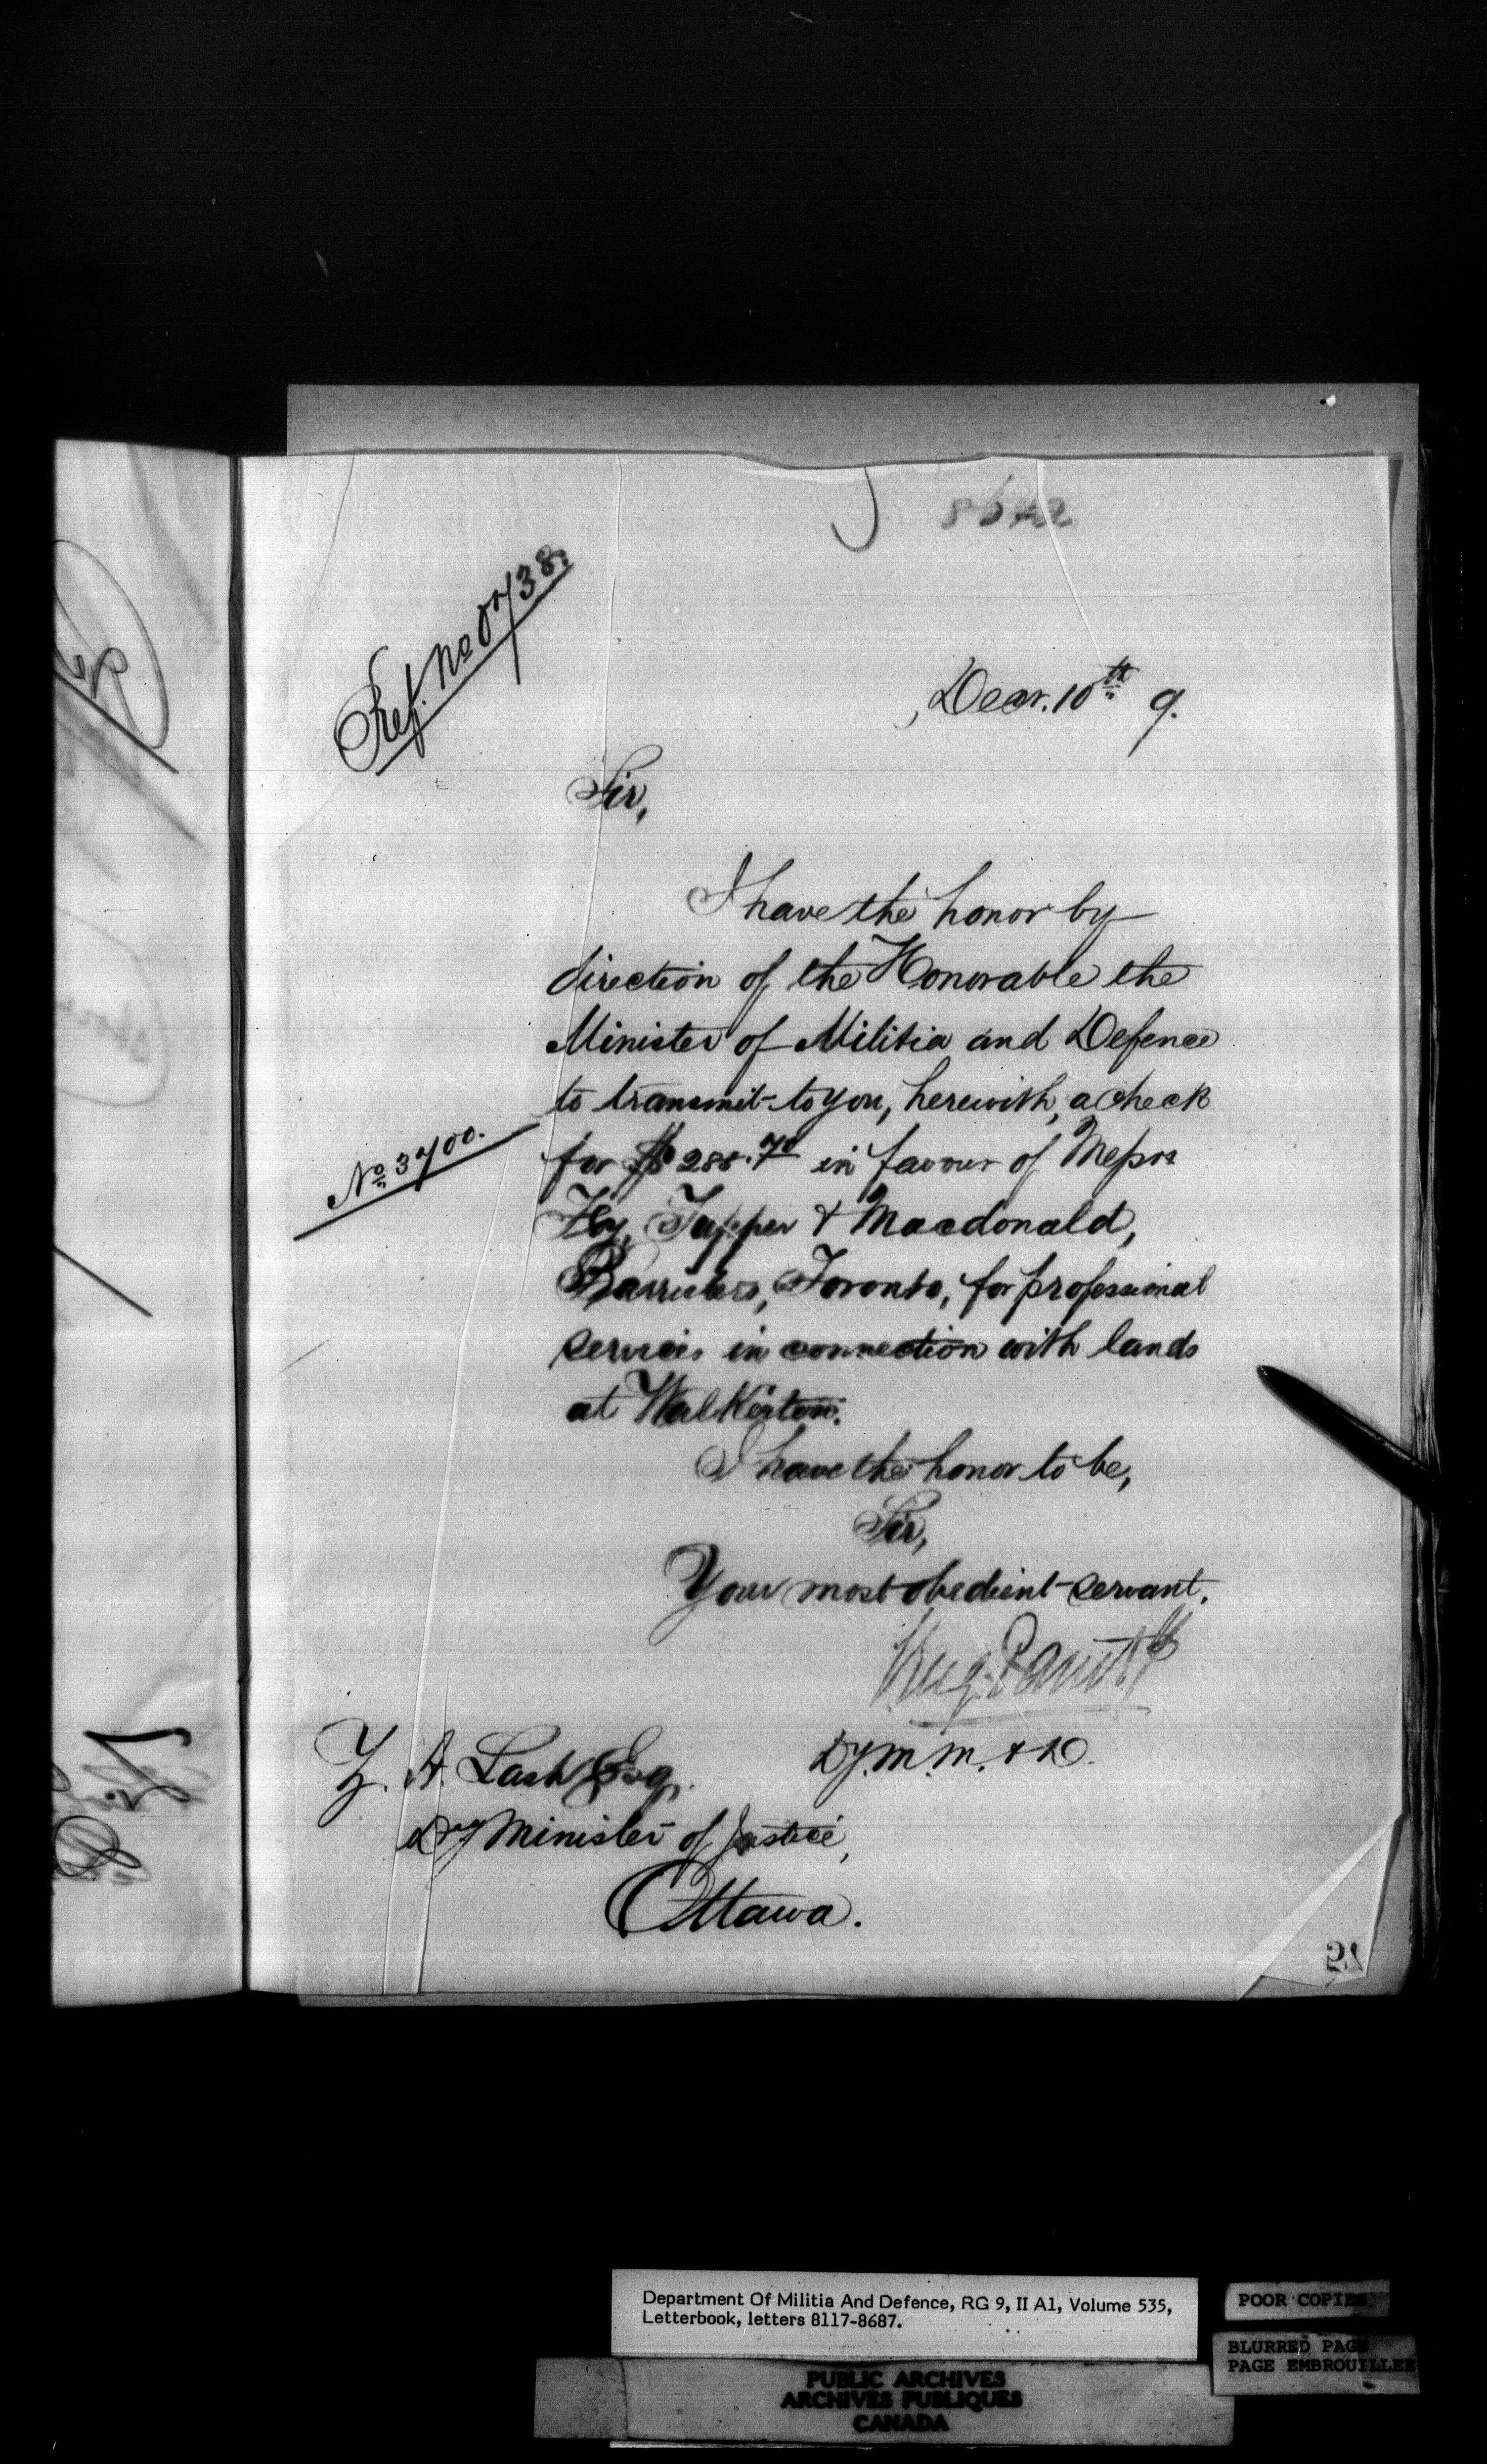 8642
Ref. No 0738.
Decr. 10th 9.
Sir,
I have the honor by
direction of the Honorable the
Minister of Militia and Defence
to transmit to you, herewith, a check
No. 3700.
for $ 288.70 in favour of Messrs
Tupper & Macdonald,
Barristers, Toronto, for professional
services in connection with lands
at Walkerton.
I have the honor to be,
Sir,
Your most obedient servant.
Eug. Panet
Dy. M. M. & D.
Z. A. Lash Esq.
Dy Minister of Justice,
Ottawa.
Department Of Militia And Defence, RG 9, II A1, Volume 535,
Letterbook, letters 8117-8687.
POOR COPIES
BLURRED PAGE
PAGE EMBROUILLEE
PUBLIC ARCHIVES
ARCHIVES PUBLIQUES
CANADA